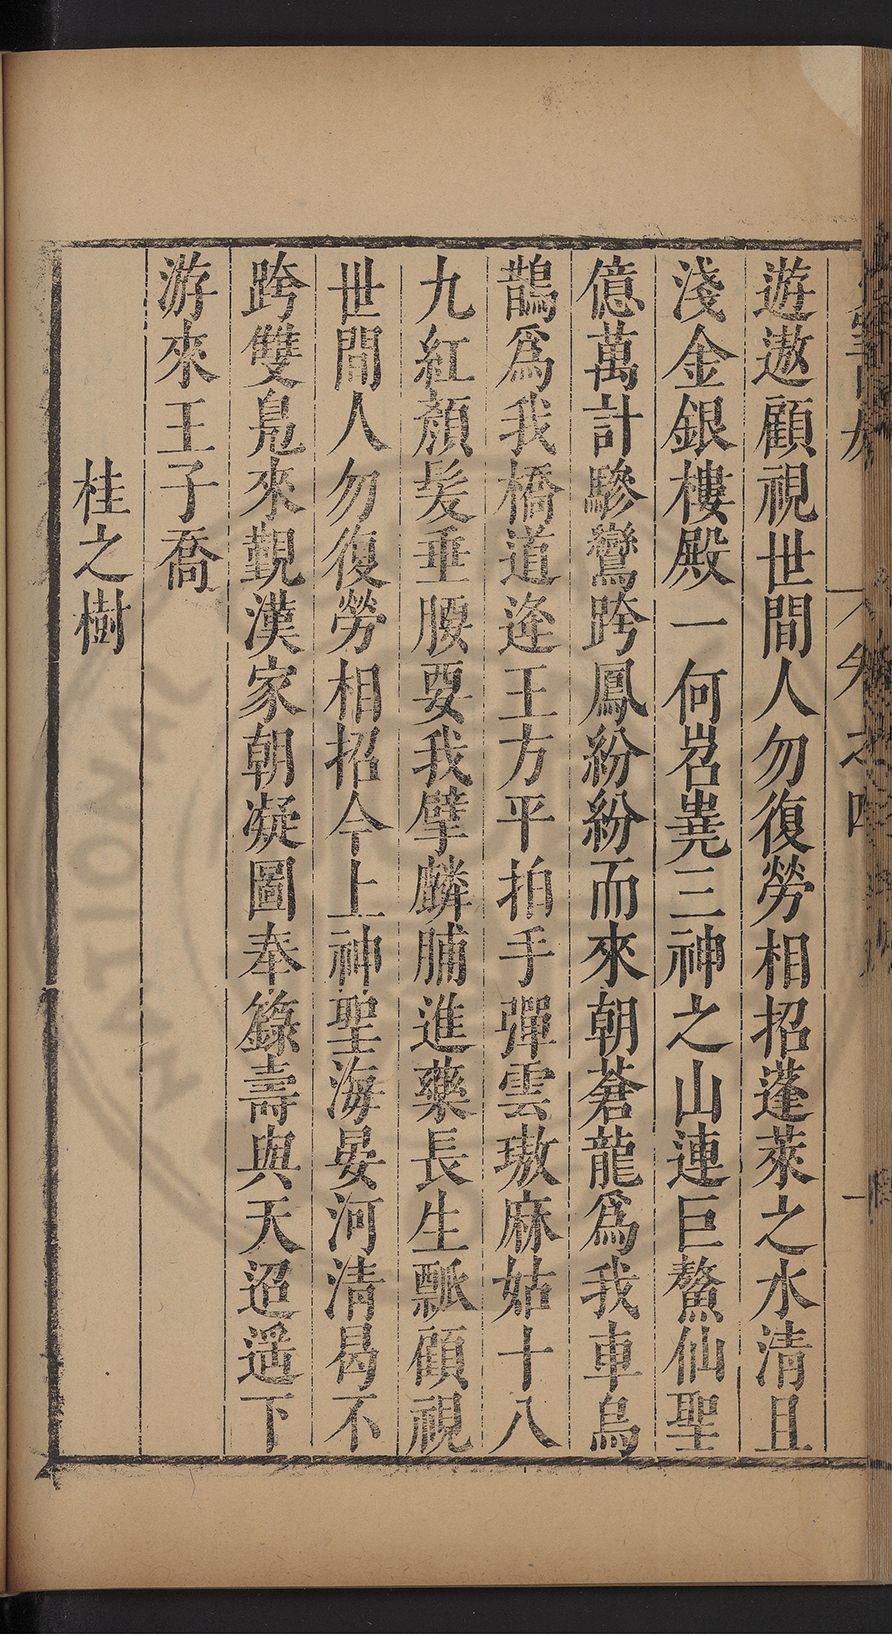 遊遨顧視世間人勿復勞相招蓬萊之水清且
淺金銀樓殿一何岧嶤三神之山連巨鰲仙聖
億萬計驂鸞跨鳳紛紛而來朝蒼龍爲我車烏
鵲爲我橋道逢王方平拍手彈雲璈麻姑十八
九紅顏髮垂腰要我擘麟脯進藥長生瓢顧視
世間人勿復勞相招今上神聖海晏河清曷不
跨雙鳧來覲漢家朝凝圖奉籙壽與天迢遥下
游來王子喬
桂之樹